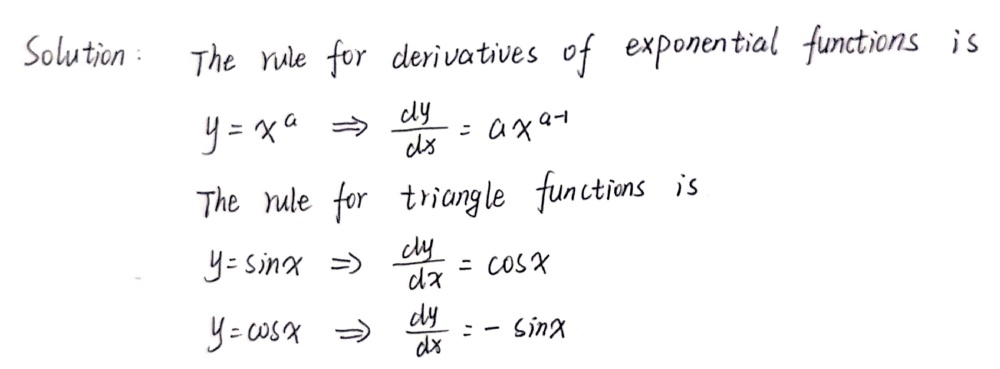 Solution: The rule for derivatives of exponential functions is
y = x^a ⇒ dy/dx = ax^(a-1)
The rule for triangle functions is
y = sinx ⇒ dy/dx = cosx
y = cosx ⇒ dy/dx = - sinx